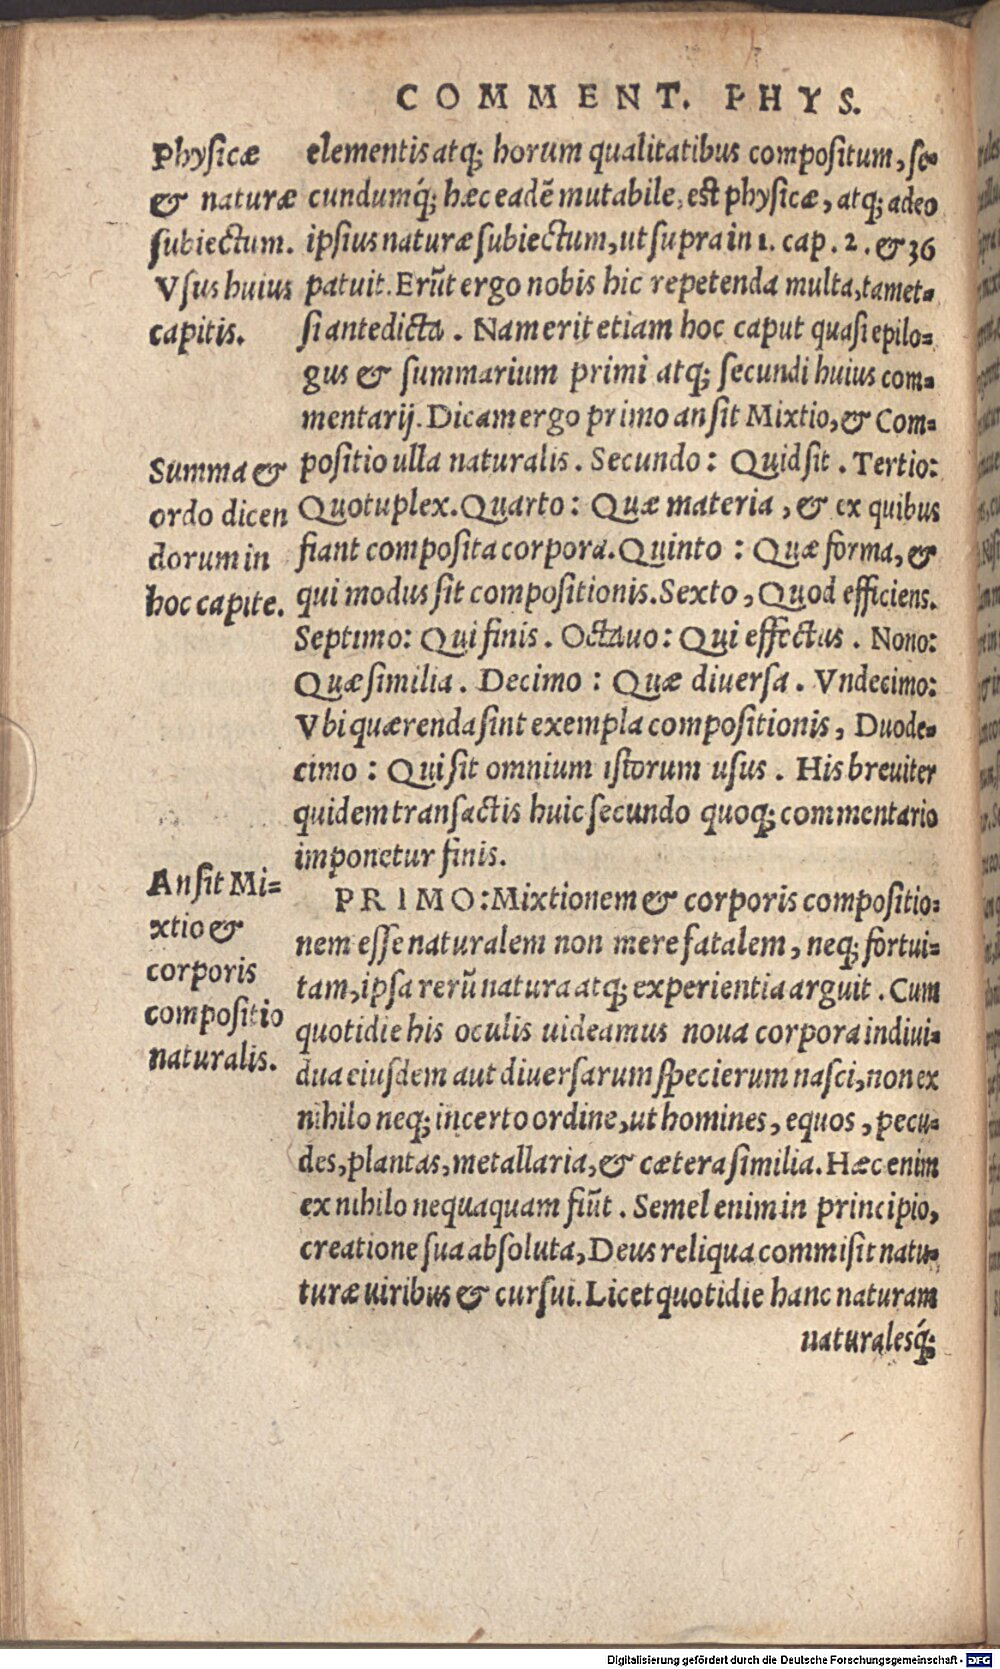 COMMENT. PHYS.
Physicæ
& naturæ
subiectum.
Vsus huius
capitis.
elementis atq; horum qualitatibus compositum, se-
cundumq́; hæc eadẽ mutabile, est physicæ, atq; adeo
ipsius naturæ subiectum, ut supra in 1. cap. 2. & 36
patuit. Erũt ergo nobis hic repetenda multa, tamet-
si antedicta. Nam erit etiam hoc caput quasi epilo-
gus & summarium primi atq; secundi huius com-
mentarij. Dicam ergo primo an sit Mixtio, & Com-
Summa &
ordo dicen
dorum in
hoc capite.
positio ulla naturalis. Secundo: Quid sit. Tertio:
Quotuplex. Quarto: Quæ materia, & ex quibus
fiant composita corpora. Quinto: Quæ forma, &
qui modus sit compositionis. Sexto, Quod efficiens.
Septimo: Qui finis. Octauo: Qui effectus. Nono:
Quæ similia. Decimo: Quæ diuersa. Vndecimo:
Vbi quærenda sint exempla compositionis, Duode-
cimo: Qui sit omnium istorum usus. His breuiter
quidem transactis huic secundo quoq; commentario
imponetur finis.
An sit Mi-
xtio &
corporis
compositio
naturalis.
PRIMO: Mixtionem & corporis compositio-
nem esse naturalem non mere fatalem, neq; fortui-
tam, ipsa rerũ natura atq; experientia arguit. Cum
quotidie his oculis uideamus noua corpora indiui-
dua eiusdem aut diuersarum specierum nasci, non ex
nihilo neq; incerto ordine, ut homines, equos, pecu-
des, plantas, metallaria, & cætera similia. Hæc enim
ex nihilo nequaquam fiũt. Semel enim in principio,
creatione sua absoluta, Deus reliqua commisit natu-
turæ uiribus & cursui. Licet quotidie hanc naturam
naturalesq́;
Digitalisierung gefördert durch die Deutsche Forschungsgemeinschaft - DFG